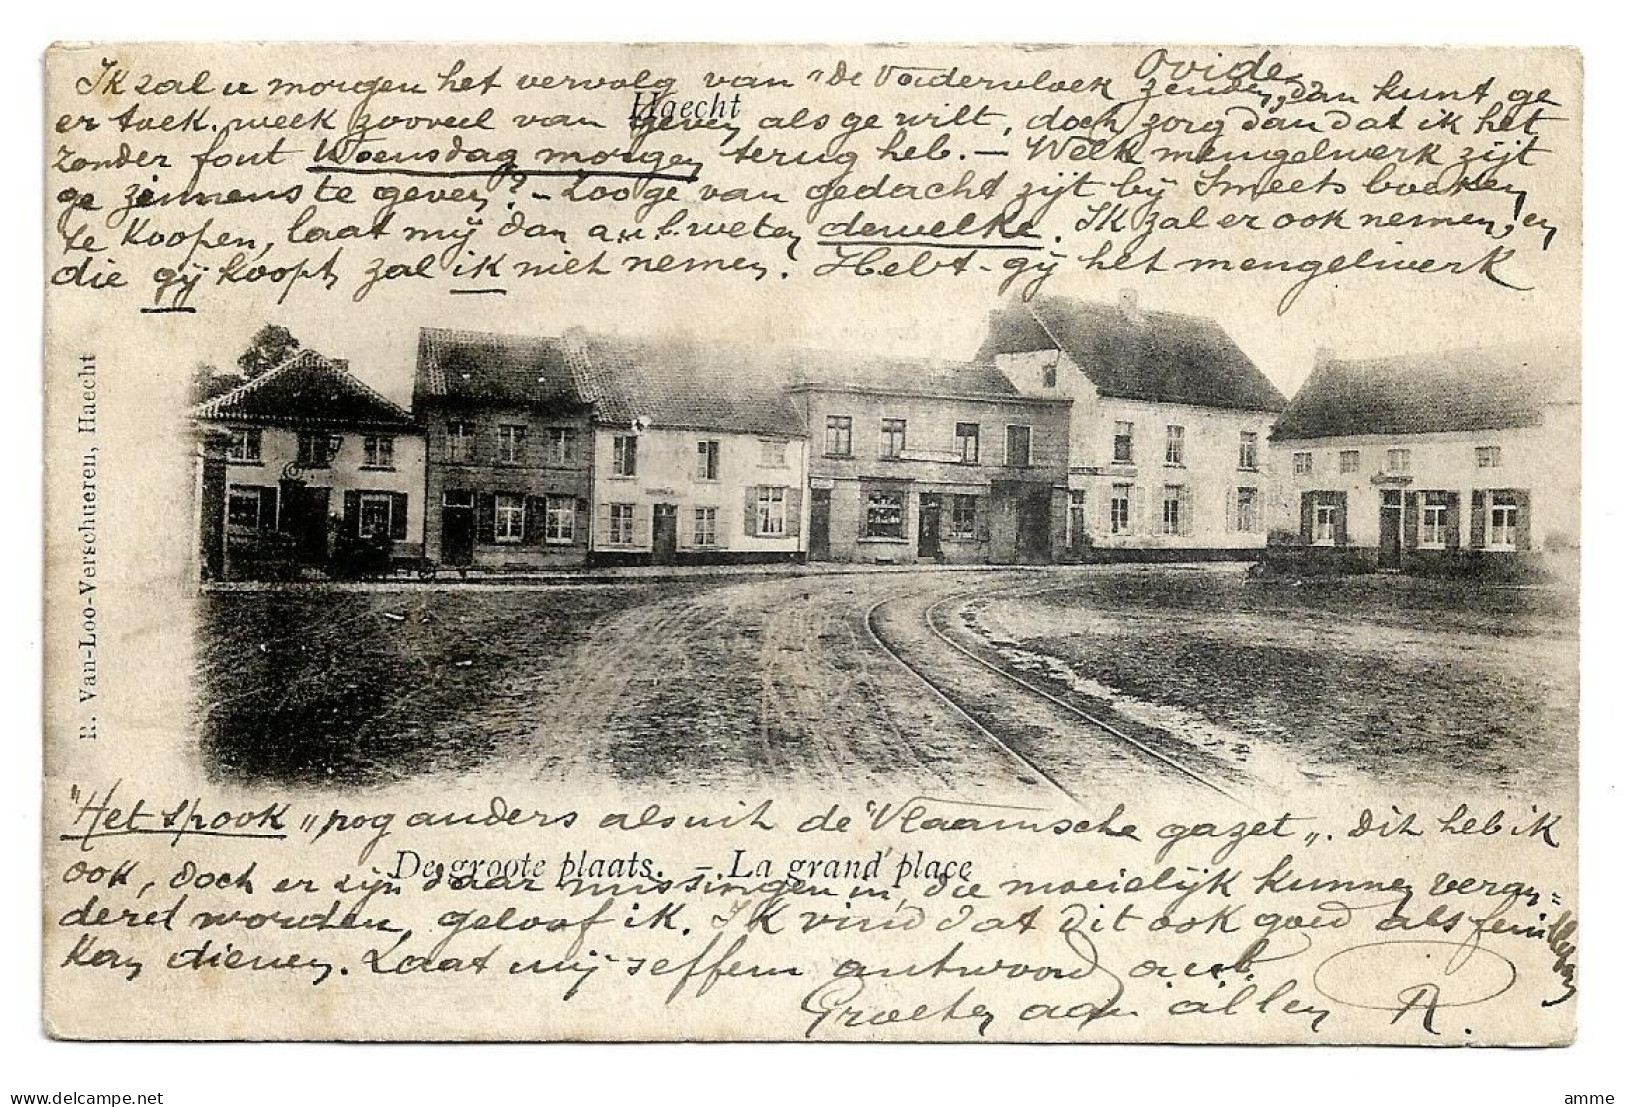 Ovide
Ik zal u morgen het vervolg van "De Vadervloek zenden, dan kunt ge
Haecht
er toek. week zooveel van geven als ge wilt, doch zorg dan dat ik het
zonder fout Woensdag morgen terug heb. – Welk mengelwerk zijt
ge zinnens te geven? – Zoo ge van gedacht zijt bij Smeets boeken
te koopen, laat mij dan a.u.b. weten dewelke. Ik zal er ook nemen, en
die gij koopt, zal ik niet nemen! Hebt-gij het mengelwerk
R. Van-Loo-Verschueren, Haecht
"Het spook" nog anders als uit de "Vlaamsche gazet". Dit heb ik
De groote plaats. – La grand' place
ook, doch er zijn daar missingen in, die moeielijk kunnen veran=
derd worden, geloof ik. Ik vind dat dit ook goed als feuilleton
kan dienen. Laat mij seffens antwoord a.u.b.
Groeten aan allen R.
delcampe.net
amme